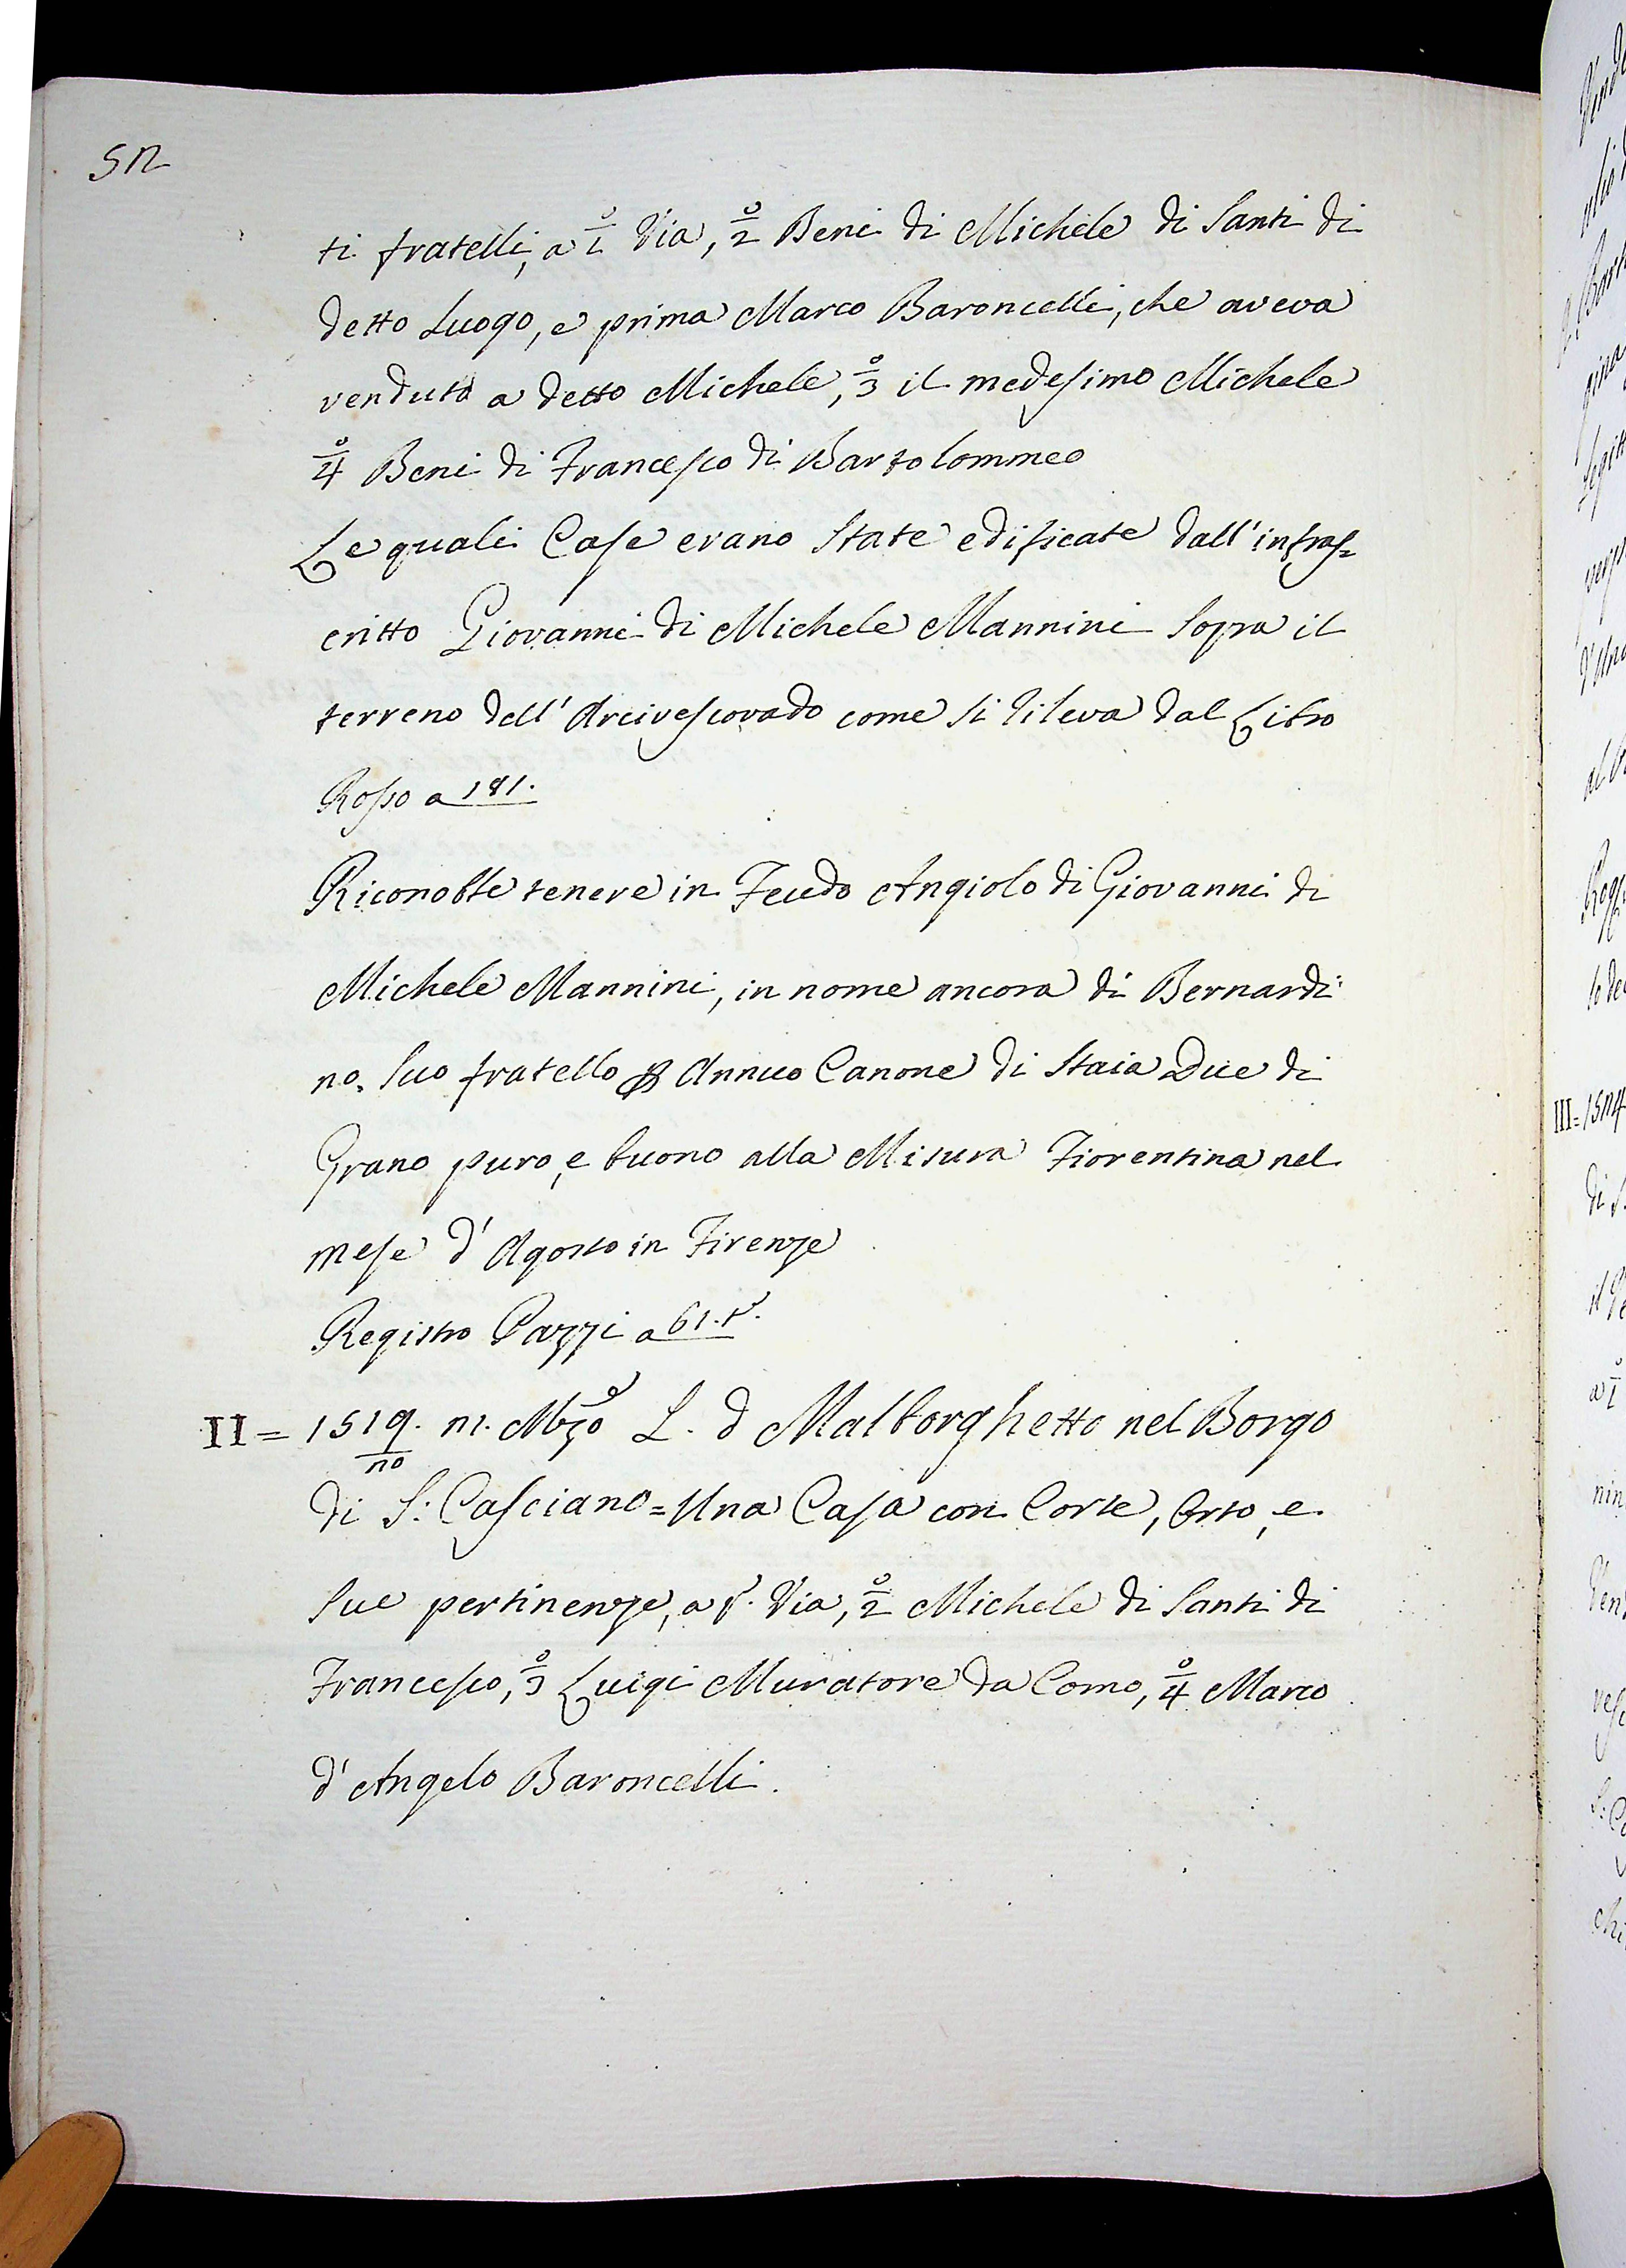 52
ti fratelli, a 1° Via, 2° Beni di Michele di Santi di
detto Luogo, e prima Marco Baroncelli, che aveva
venduto a detto Michele, 3° il medesimo Michele
4° Beni di Francesco di Bartolommeo
Le quali Case erano State edificate dall'infras=
critto Giovanni di Michele Mannini Sopra il
terreno dell'Arcivescovado come si rileva dal Libro
Rosso a 181.
Riconobbe tenere in Feudo Angiolo di Giovanni di
Michele Mannini, in nome ancora di Bernardi:
no Suo fratello Annuo Canone di Staia Due di
Grano puro, e buono alla Misura Fiorentina nel
mese d'Agosto in Firenze
Registro Pazzi a 61.
II = 1519. L. d Malborghetto nel Borgo
di S: Casciano = Una Casa con Corte, Orto, e
Sue pertinenze, a Via, 2° Michele di Santi di
Francesco, 3° Luigi Muratore da Como, 4° Marco
d'Angelo Baroncelli.